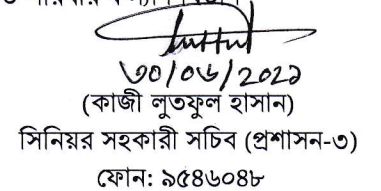 ৩০/০৬/২০২১
(কাজী লুতফুল হাসান)
সিনিয়র সহকারী সচিব (প্রশাসন-৩)
ফোন: ৯৫৪৬০৪৮